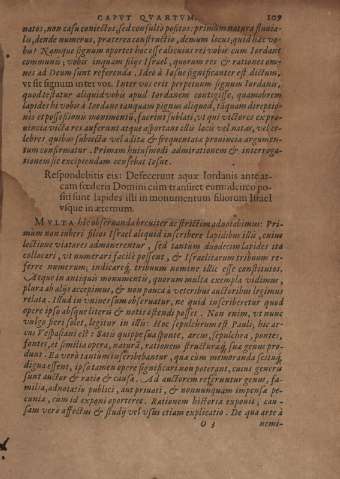 CAPUT QUARTUM. 109
natos, non casu contectos, sed consultò positos: primùm natura fluuia-
lis, deinde numerus, præterea constructio, demum locus, quid hæc vo-
bis? Nam que signum oportet hoc esse alicuius rei vobis cum Iordane
communis; vobis inquam filijs Israel, quorum res & rationes om-
nes ad Deum sunt referendæ. Ideò à Iosue significanter est dictum,
vt sit signum inter vos. Inter vos erit perpetuum signum Iordanis,
quod testatur aliquid vobis apud Iordanem contigisse, quamobrem
lapides hi vobis à Iordane tanquam pignus aliquod, tanquam direptio-
nis expositionis monumentũ, fuerint sublati, vt qui victores ex pro-
uincia victa res auferunt atque asportant illis locis vel natas, vel ce-
lebres quibus subiecta vel adita & frequentata prouincia argumen-
tum confirmatur. Primam huiusmodi admirationem & interroga-
tionem sic excipiendam censebat Iosue.
Respondebitis eis: Defecerunt aquæ Iordanis ante ar-
cam fœderis Domini cùm transiret eum: idcirco po-
siti sunt lapides isti in monumentum filiorum Israel
vsque in æternum.
MVLTA hîc obseruanda breuiter ac strictim adnotabimus: Pri-
mùm non iuberi filios Israel aliquid inscribere lapidibus illis, cuius
lectione viatores admonerentur, sed tantùm duodecim lapides ita
collocari, vt numerari facilè possent, & Israelitarum tribuum re-
ferre numerum, indicareq́; tribuum nomine illic esse constitutos.
Atque in antiquis monumentis, quorum multa exempla vidimus,
plura ab alijs accepimus, & non pauca à veteribus auctoribus legimus
relata. Illud in vniuersum obseruatur, ne quid inscriberetur quod
opere ipso absque literis & notis ostendi posset. Non enim, vt nunc
vulgò fieri solet, legitur in illis: Hoc sepulchrum est Pauli, hic ar-
cus Vespasiani est: Satis quippe sua sponte, arcus, sepulchra, pontes,
fontes, et similia opera, naturã, rationem, structurãq́; sua genus pro-
dunt. Ea verò tantùm inscribebantur, quæ cùm memoranda scituq́;
digna essent, ipso tamen opere significari non poterant, cuius generis
sunt auctor & ratio & causa. Ad auctorem referuntur genus, fa-
milia, adnotatio publici, aut priuati, & nonnunquam impensa pe-
cunia, cùm id exponi oporteret. Rationem historia exponit, cau-
sam verò affectus & studij vel vsus etiam explicatio. De qua arte à
O 3 nemi-